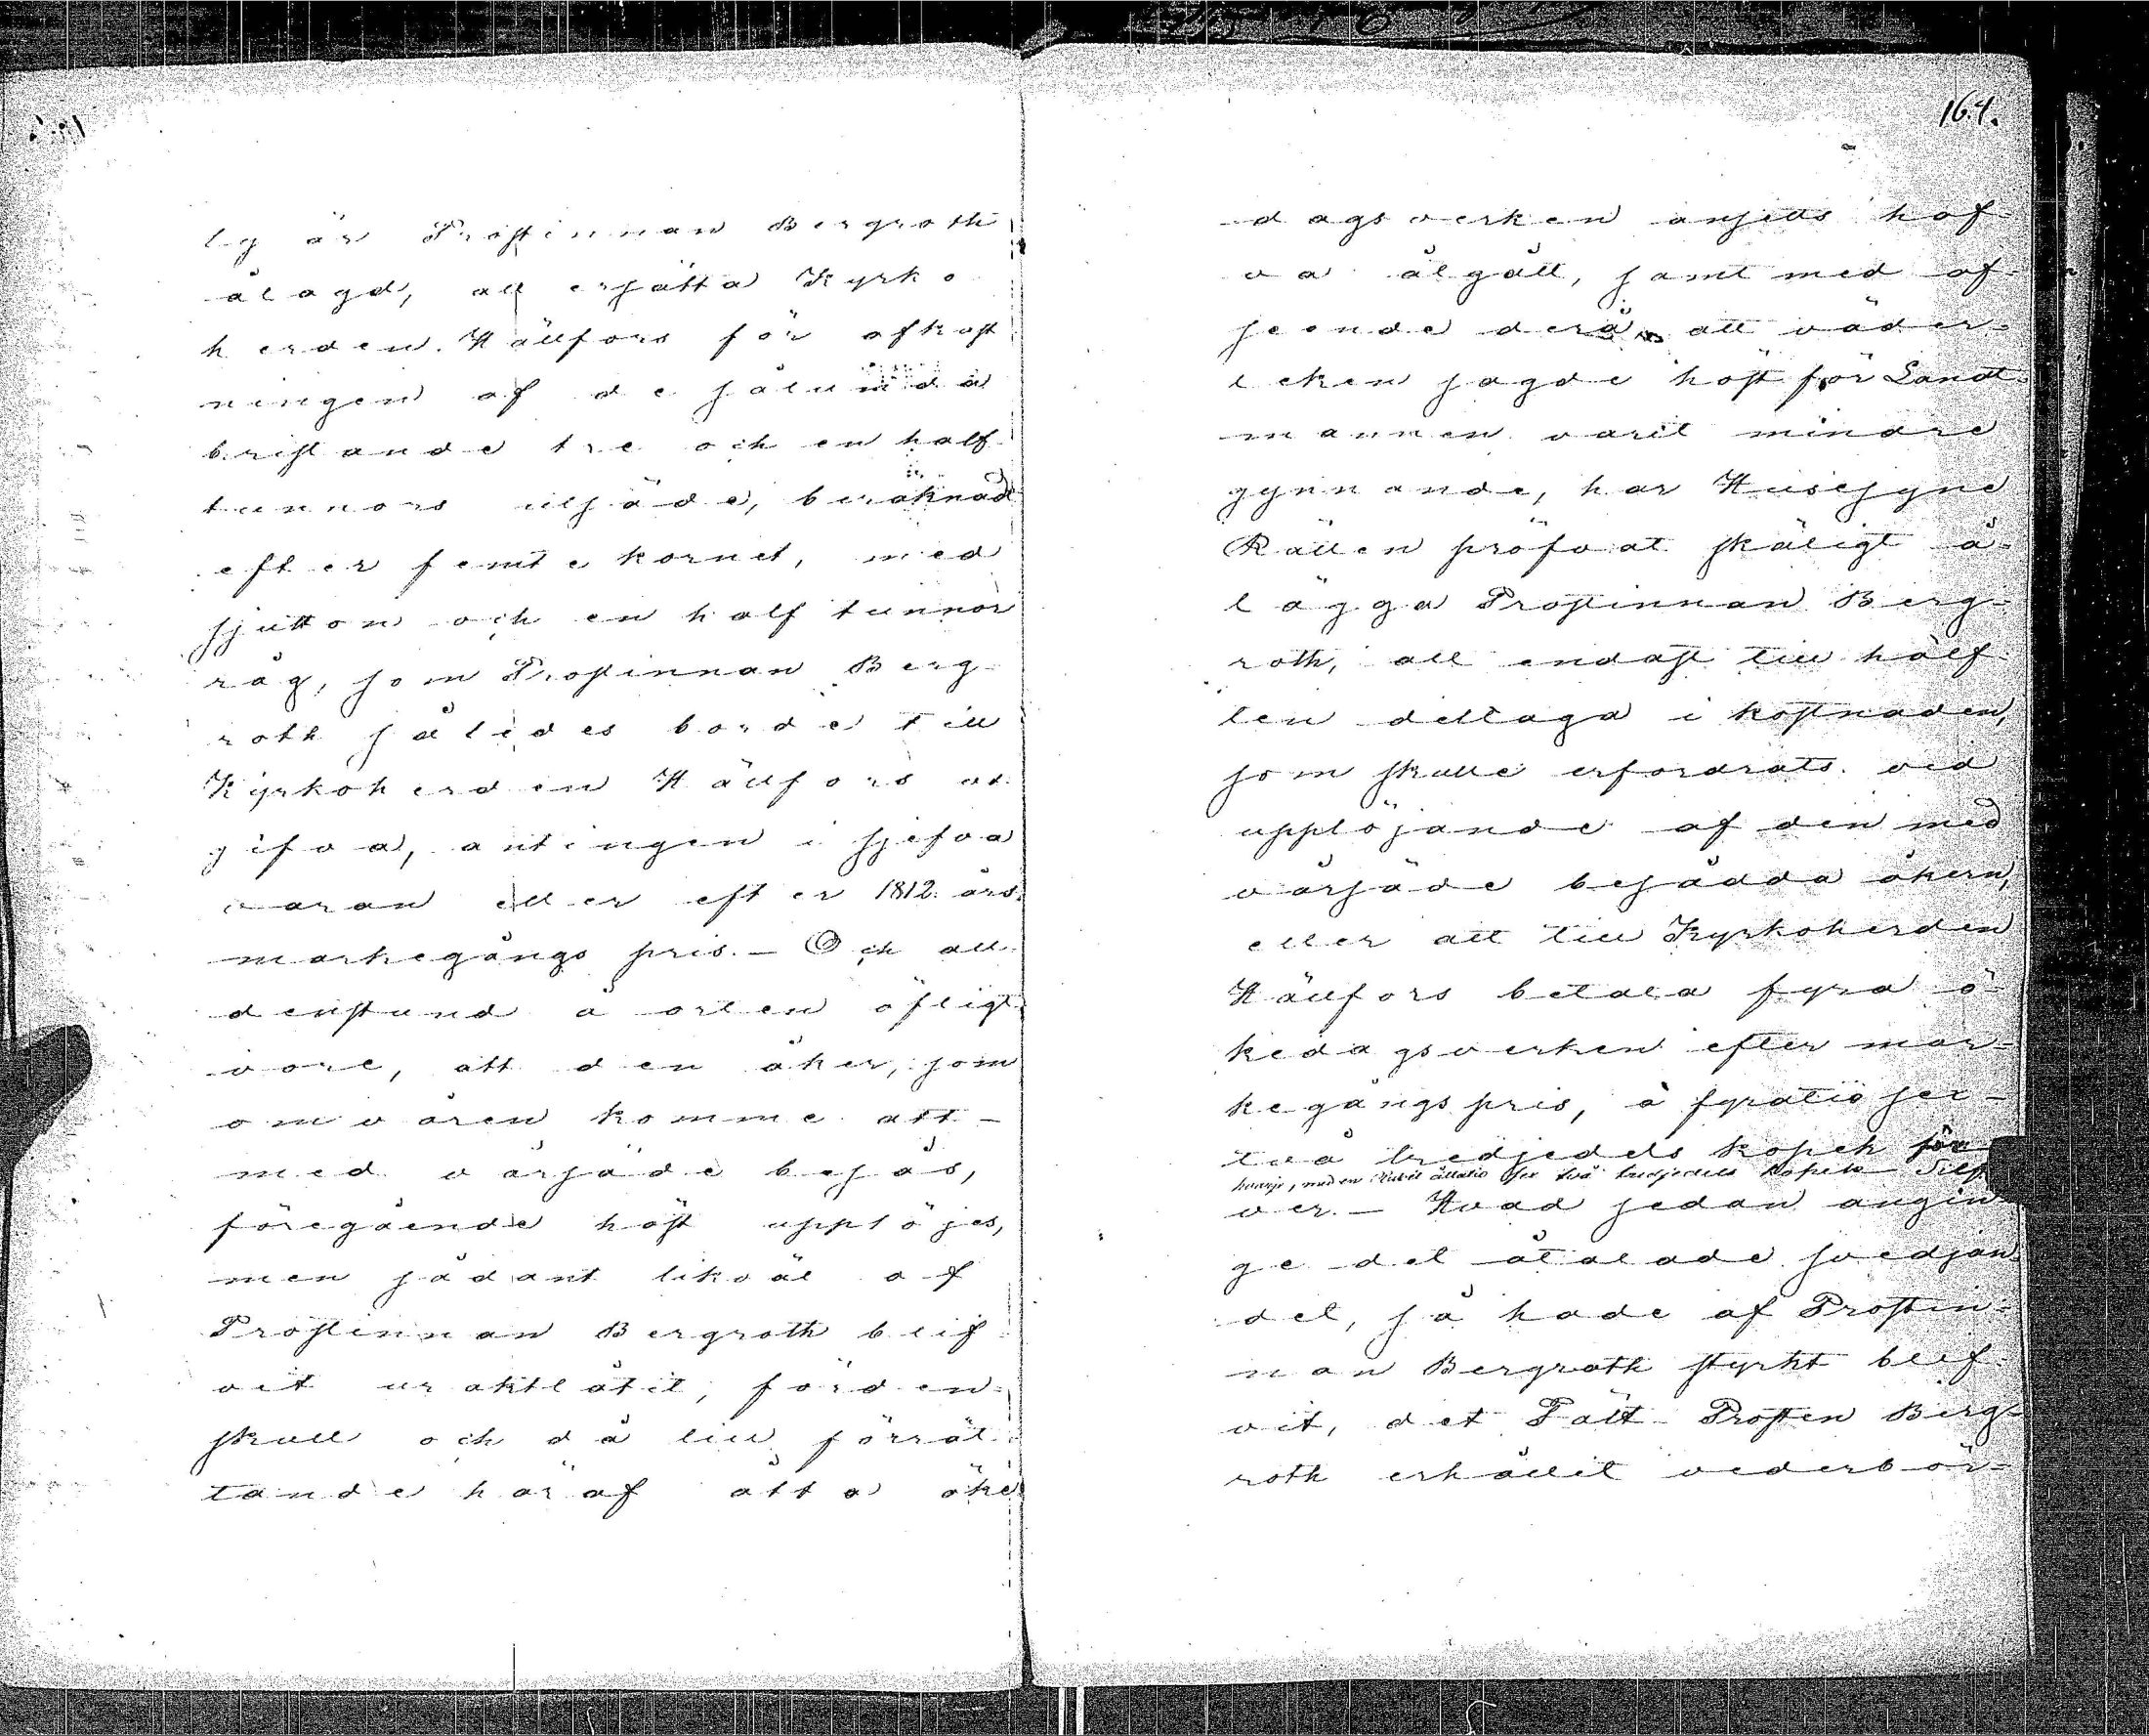 lig är Prostinnan Bergroth
ålagd, att ersätta Kyrko
herden Hällfors för afkast
ningen af de sålunda
bristande tre och en half
tunnors utsäde, beräknad
efter femte kornet, med
sjutton och en half tunnor
råg, som Prostinnan Berg-
roth således borde till
Kyrkoherden Hällfors ut
gifva, antingen i sjelfva
varan eller efter 1812 års
markegångs pris. — Och all
denstund å orten öfligt
vore, att den åker, som
om våren komme att
med vårsäde besås,
föregående höst upplöjes,
men sådant likväl af
Prostinnan Bergroth blif
vit uraktlåtit, förden-
skull och då till förrät-
tande häraf åtta öke
164.
dagsverken ansetts haf-
va åtgått, samt med af-
seende derå att väder-
leken sagde höst för Landt-
mannen varit mindre
gynnande, har Husesyns
Rätten pröfvat skäligt å-
lägga Prostinnan Berg-
roth, att endast till hälf-
ten deltaga i kostnaden,
som skulle erfordrats vid
upplöjande af den med
vårsäde besådda åkern,
eller att till Kyrkoherden
Hällfors betala fyra ö-
kedagsverken efter mar-
kegångspris, à fyratio sex
två tredjedels kopek för
hvarje, med en Rubel åttatio sex två tredjedels Kopek Silf-
ver. — Hvad sedan angin-
ge det åtalade svedjan-
det, så hade af Prostin-
nan Bergroth styrkt blif-
vit, det Fält-Prosten Berg-
roth erhållit vederbör-